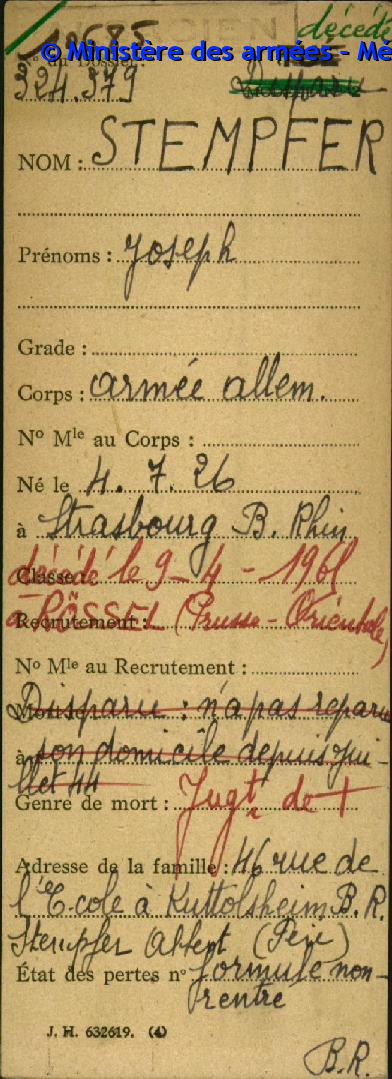 décédé
10685
© Ministère des armées - Mé
N° du Dossier :
324.379
NOM : STEMPFER
Prénoms : Joseph
Grade :
Corps : armée allem.
N° Mle au Corps :
Né le 4. 7. 26
à Strasbourg B. Rhin
Classe :
décédé le 9 - 4 - 1961
Recrutement :
à RÖSSEL (Prusse - Orientale)
N° Mle au Recrutement :
Mort le :
Disparu : n'a pas reparu
à son domicile depuis jui-
llet 44
Genre de mort : Jugt de +
Adresse de la famille : 46 rue de
l'Ecole à Kuttolsheim B.R.
Stempfer (Père)
État des pertes n° formule non-
rentré
J. H. 632619. (4)
B.R.